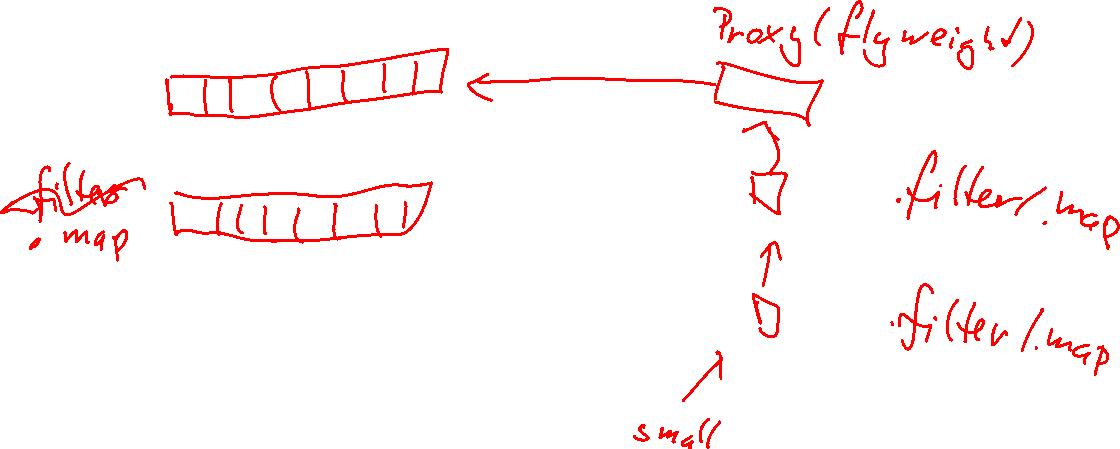 Proxy (flyweight)
.filter/.map
.map
.filter/.map
small